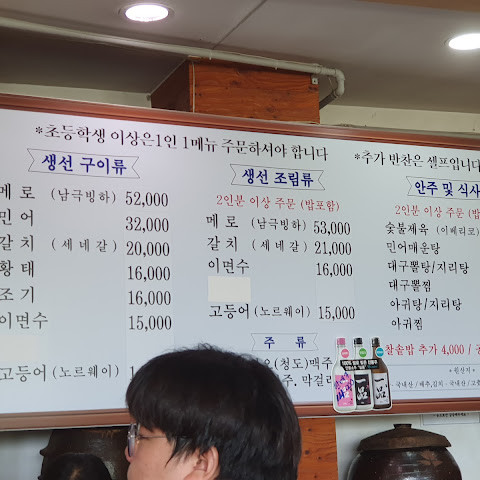 *초등학생 이상은1인 1메뉴 주문하셔야 합니다
*추가 반찬은 셀프입니다
생선 구이류
메로 (남극빙하) 52,000
민어 32,000
갈치 (세네갈) 20,000
황태 16,000
조기 16,000
이면수 15,000
고등어 (노르웨이)
생선 조림류
2인분 이상 주문 (밥포함)
메로 (남극빙하) 53,000
갈치 (세네갈) 21,000
이면수 16,000
고등어 (노르웨이) 15,000
주 류
(청도)맥주
막걸리
안주 및 식사
2인분 이상 주문
숯불제육 (이베리코)
민어매운탕
대구뽈탕/지리탕
대구뽈찜
아귀탕/지리탕
아귀찜
찬솥밥 추가 4,000 /
*원산지
국내산 / 배추,김치 - 국내산 /